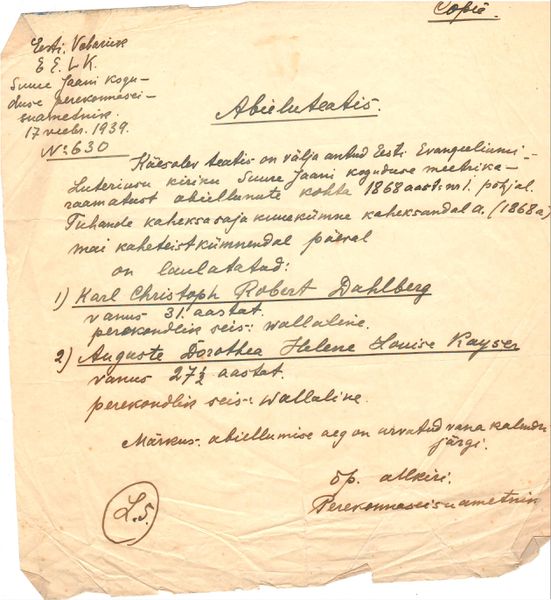 Copie
Eesti Vabariik
E E L K.
Suure Jaani kogu-
duse perekonnasei-
suametnik.
17 veebr. 1939.
№ 630
Abieluteatis.
Käesolev teatis on välja antud Eesti Evangeeliumi-
Luteriusu kiriku Suure Jaani koguduse meetrika-
raamatust abiellunute kohta 1868 aast. nr 1. põhjal.
Tuhande kaheksasaja kuuekümne kaheksandal a. (1868 a)
mai kaheteistkümnendal päeval
on laulatatud:
1) Karl Christoph Robert Dahlberg
vanus 31. aastat.
perekondlik seis: wallaline.
2) Auguste Dorothea Helene Louise Kayser
vanus 27½ aastat.
perekondlik seis: wallaline.
Märkus: abiellumise aeg on arvatud vana kalendri
järgi.
õp. allkiri.
Perekonnaseisuametnik
L.S.